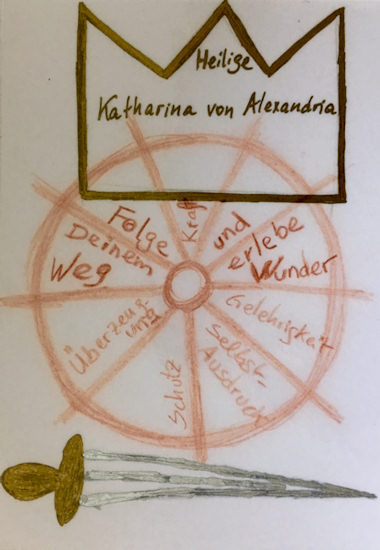 Heilige
Katharina von Alexandria
Folge
Deinem
Weg
Kraft
und
erlebe
Wunder
Gelehrigkeit
Selbst-
Ausdruck
Schutz
Überzeug-
ung